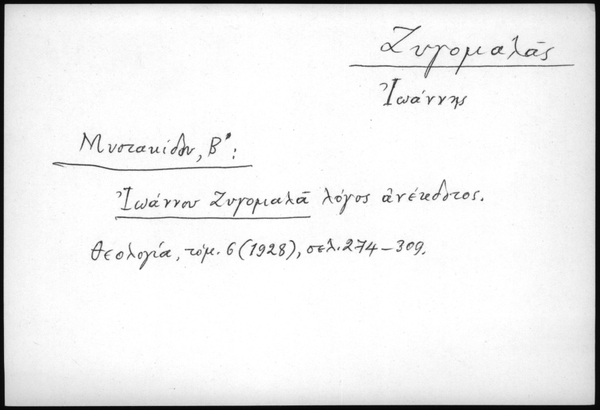 Ζυγομαλᾶς
Ἰωάννης
Μυστακίδου, Β':
Ἰωάννου Ζυγομαλᾶ λόγος ἀνέκδοτος.
Θεολογία, τόμ. 6 (1928), σελ. 274–309.